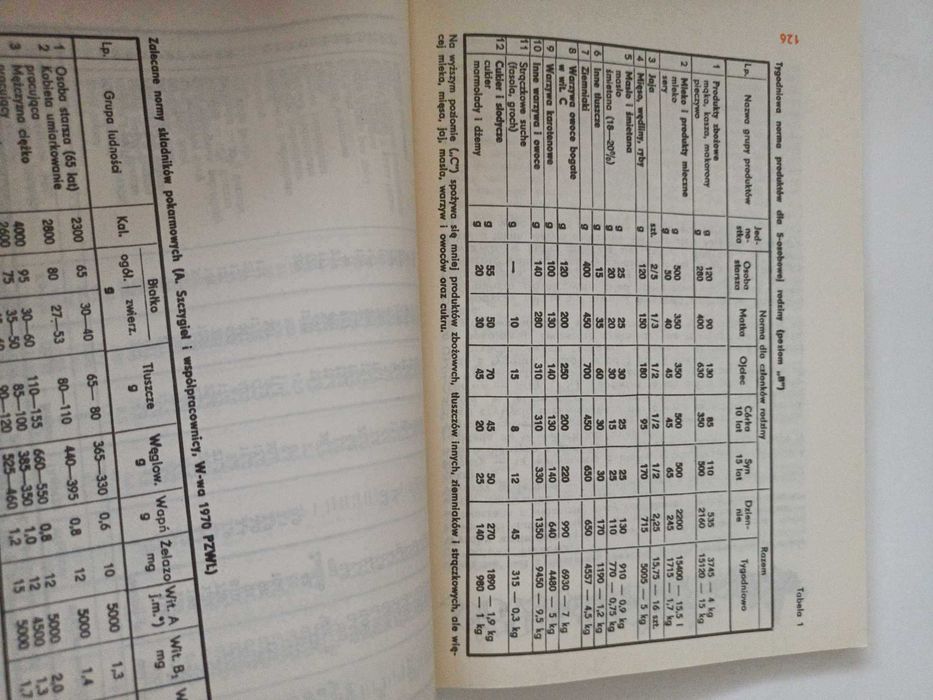 126
Tabela 1
Tygodniowa norma produktów dla 5-osobowej rodziny (poziom „B")
Lp. Nazwa grupy produktów Jed-no-stka Norma dla członków rodziny Razem
Osoba starsza Matka Ojciec Córka 10 lat Syn 15 lat Dzien-nie Tygodniowo
1 Produkty zbożowe
mąka, kasza, makarony g 120 90 130 85 110 535 3745 — 4 kg
pieczywo g 280 400 630 350 500 2160 15120 — 15 kg
2 Mleko i produkty mleczne
mleko g 500 350 350 500 500 2200 15400 — 15,5 l
sery g 50 40 45 45 65 245 1715 — 1,7 kg
3 Jaja szt. 2/5 1/3 1/2 1/2 1/2 2,25 15,75 — 16 szt.
4 Mięso, wędliny, ryby g 120 150 180 95 170 715 5005 — 5 kg
5 Masło i śmietana
masło g 25 25 30 25 25 130 910 — 0,9 kg
śmietana (18—20%) g 20 20 30 15 25 110 770 — 0,75 kg
6 Inne tłuszcze g 15 35 60 30 30 170 1190 — 1,2 kg
7 Ziemniaki g 400 450 700 450 650 650 4557 — 4,5 kg
8 Warzywa owoce bogate
w wit. C g 120 200 250 200 220 990 6930 — 7 kg
9 Warzywa karotenowe g 100 130 140 130 140 640 4480 — 5 kg
10 Inne warzywa i owoce g 140 280 310 310 330 1350 9450 — 9,5 kg
11 Strączkowe suche
(fasola, groch) g — 10 15 8 12 45 315 — 0,3 kg
12 Cukier i słodycze
cukier g 55 50 70 45 50 270 1890 — 1,9 kg
marmolady i dżemy g 20 30 45 20 25 140 980 — 1 kg
Na wyższym poziomie („C") spożywa się mniej produktów zbożowych, tłuszczów innych, ziemniaków i strączkowych, ale wię-
cej mleka, mięsa, jaj, masła, warzyw i owoców oraz cukru.
Zalecane normy składników pokarmowych (A. Szczygieł i współpracownicy, W-wa 1970 PZWL)
Lp. Grupa ludności Kal. Białko ogól. zwierz. g Tłuszcze g Węglow. g Wapń g Żelazo mg Wit. A j.m.*) Wit. B₁ mg
1 Osoba starsza (65 lat) 2300 65 30—40 65—80 365—330 0,6 10 5000 1,3
2 Kobieta umiarkowanie
pracująca 2800 80 27—53 80—110 440—395 0,8 12 5000 1,4
3 Mężczyzna ciężko
pracujący 4000 95 30—60 110—155 660—550 0,8 12 5000 2,0
2600 75 35—50 85—100 385—350 1,0 12 4500 1,3
90—120 525—460 1,2 15 5000 1,7